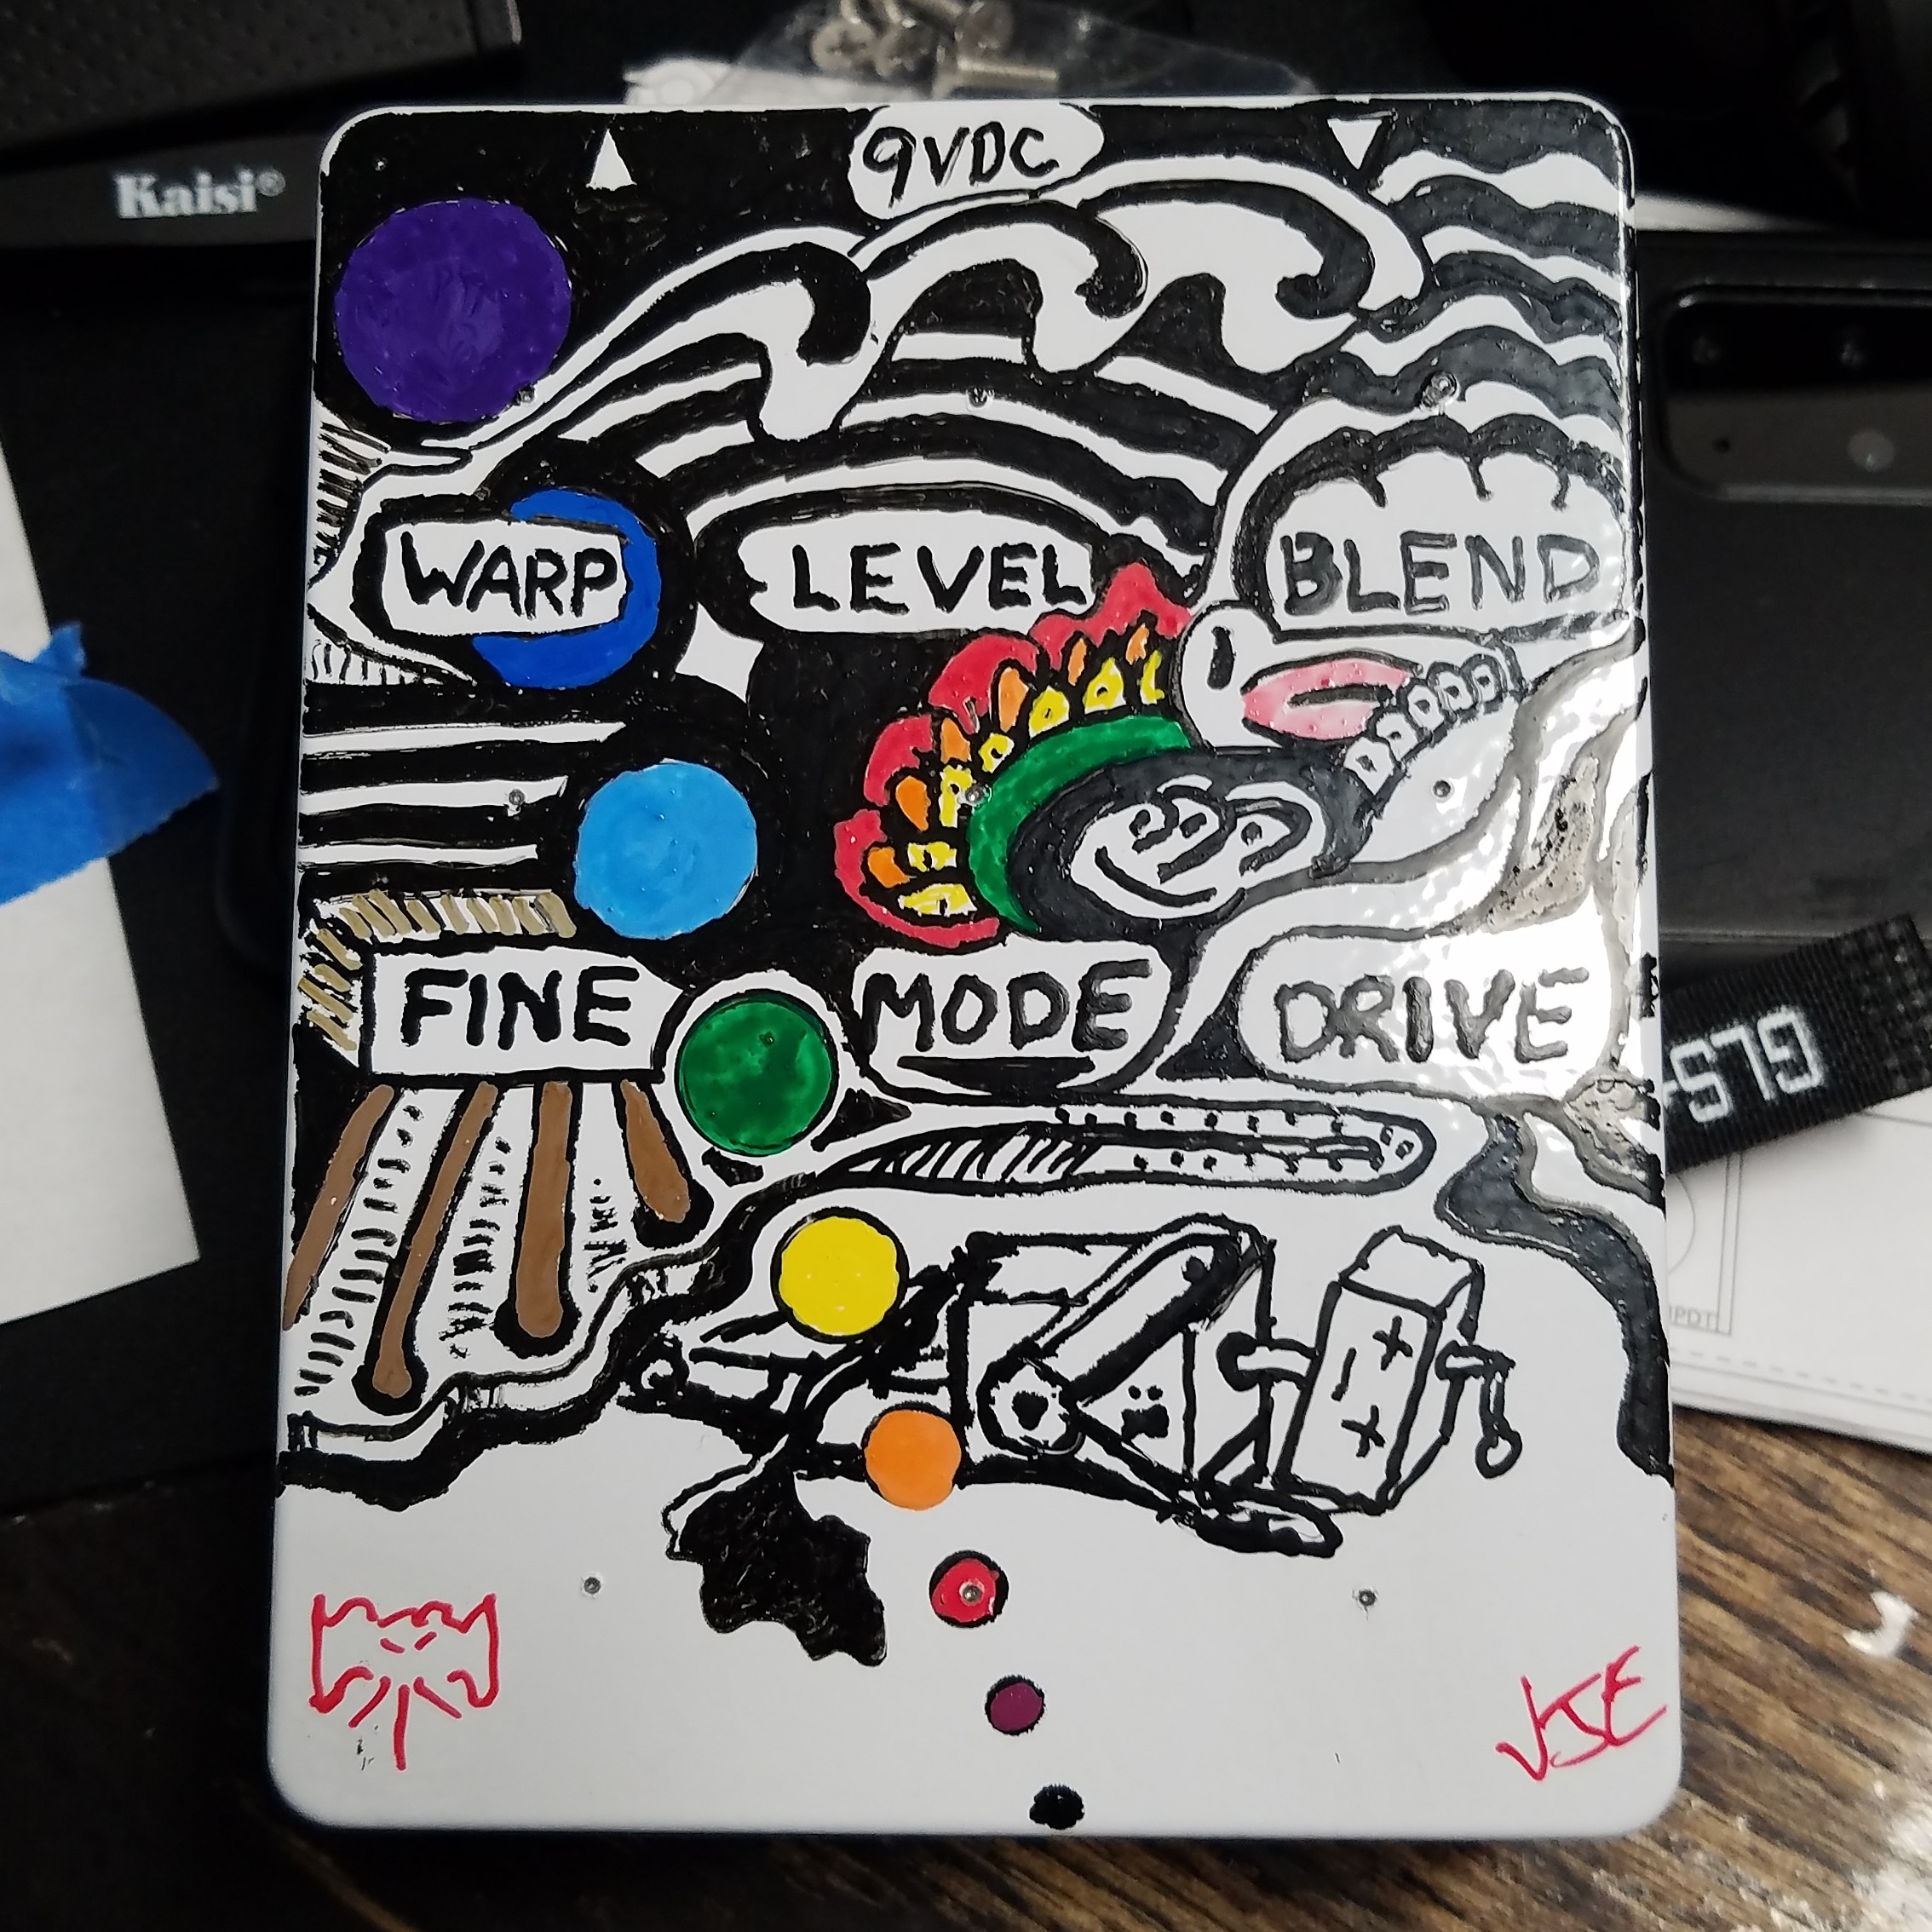 Kaisi®
9VDC
WARP LEVEL BLEND
FINE MODE DRIVE
GLS-
JSE